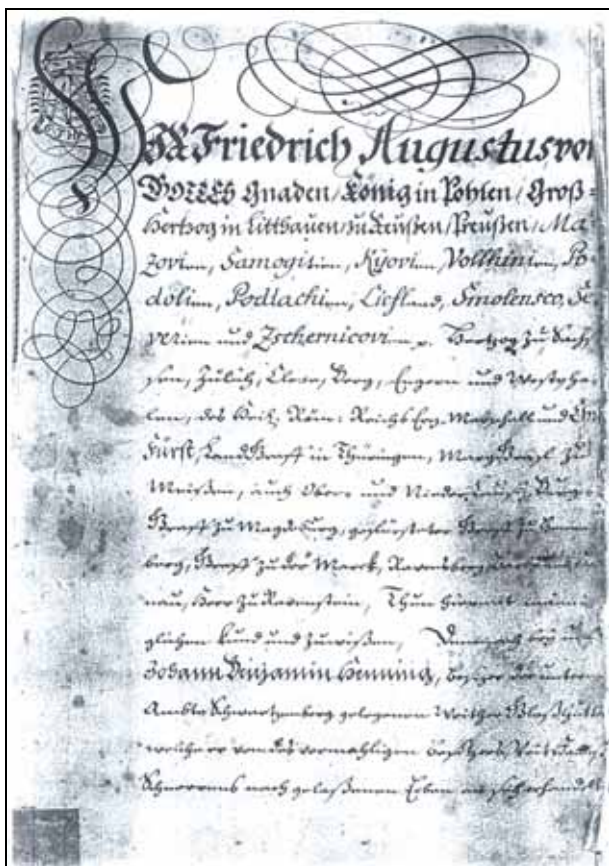 Wir Friedrich Augustus von
GOTTES Gnaden, König in Pohlen, Groß-
Hertzog in Litthauen, zu Reußen, Preußen, Ma-
zovien, Samogitien, Kyovien, Vollhinien, Po-
dolien, Podlachien, Liefland, Smolensco, Se-
verien und Zschernicovien p. Hertzog zu Sach-
sen, Jülich, Cleve, Berg, Engern und Westpha-
len, des Heil. Röm: Reichs Erz-Marschall und Chur
Fürst, Landgraff in Thüringen, Marggraff zu
Meißen, auch Ober- und Nieder-Lausitz, Burg-
Graff zu Magdeburg, gefürsteter Graff zu Henne-
berg, Graff zu der Marck, Ravensberg,
nau, Herr zu Ravenstein, Thun hiermit männi-
glichen kund und zuwißen, Demnach bey uns
Johann Benjamin Henning, besizer des unterm
Ambte Schwartzenberg gelegenen
welche er von des vormahligen
Schnorrens nach gelaßenen Erben an sich erhandelt